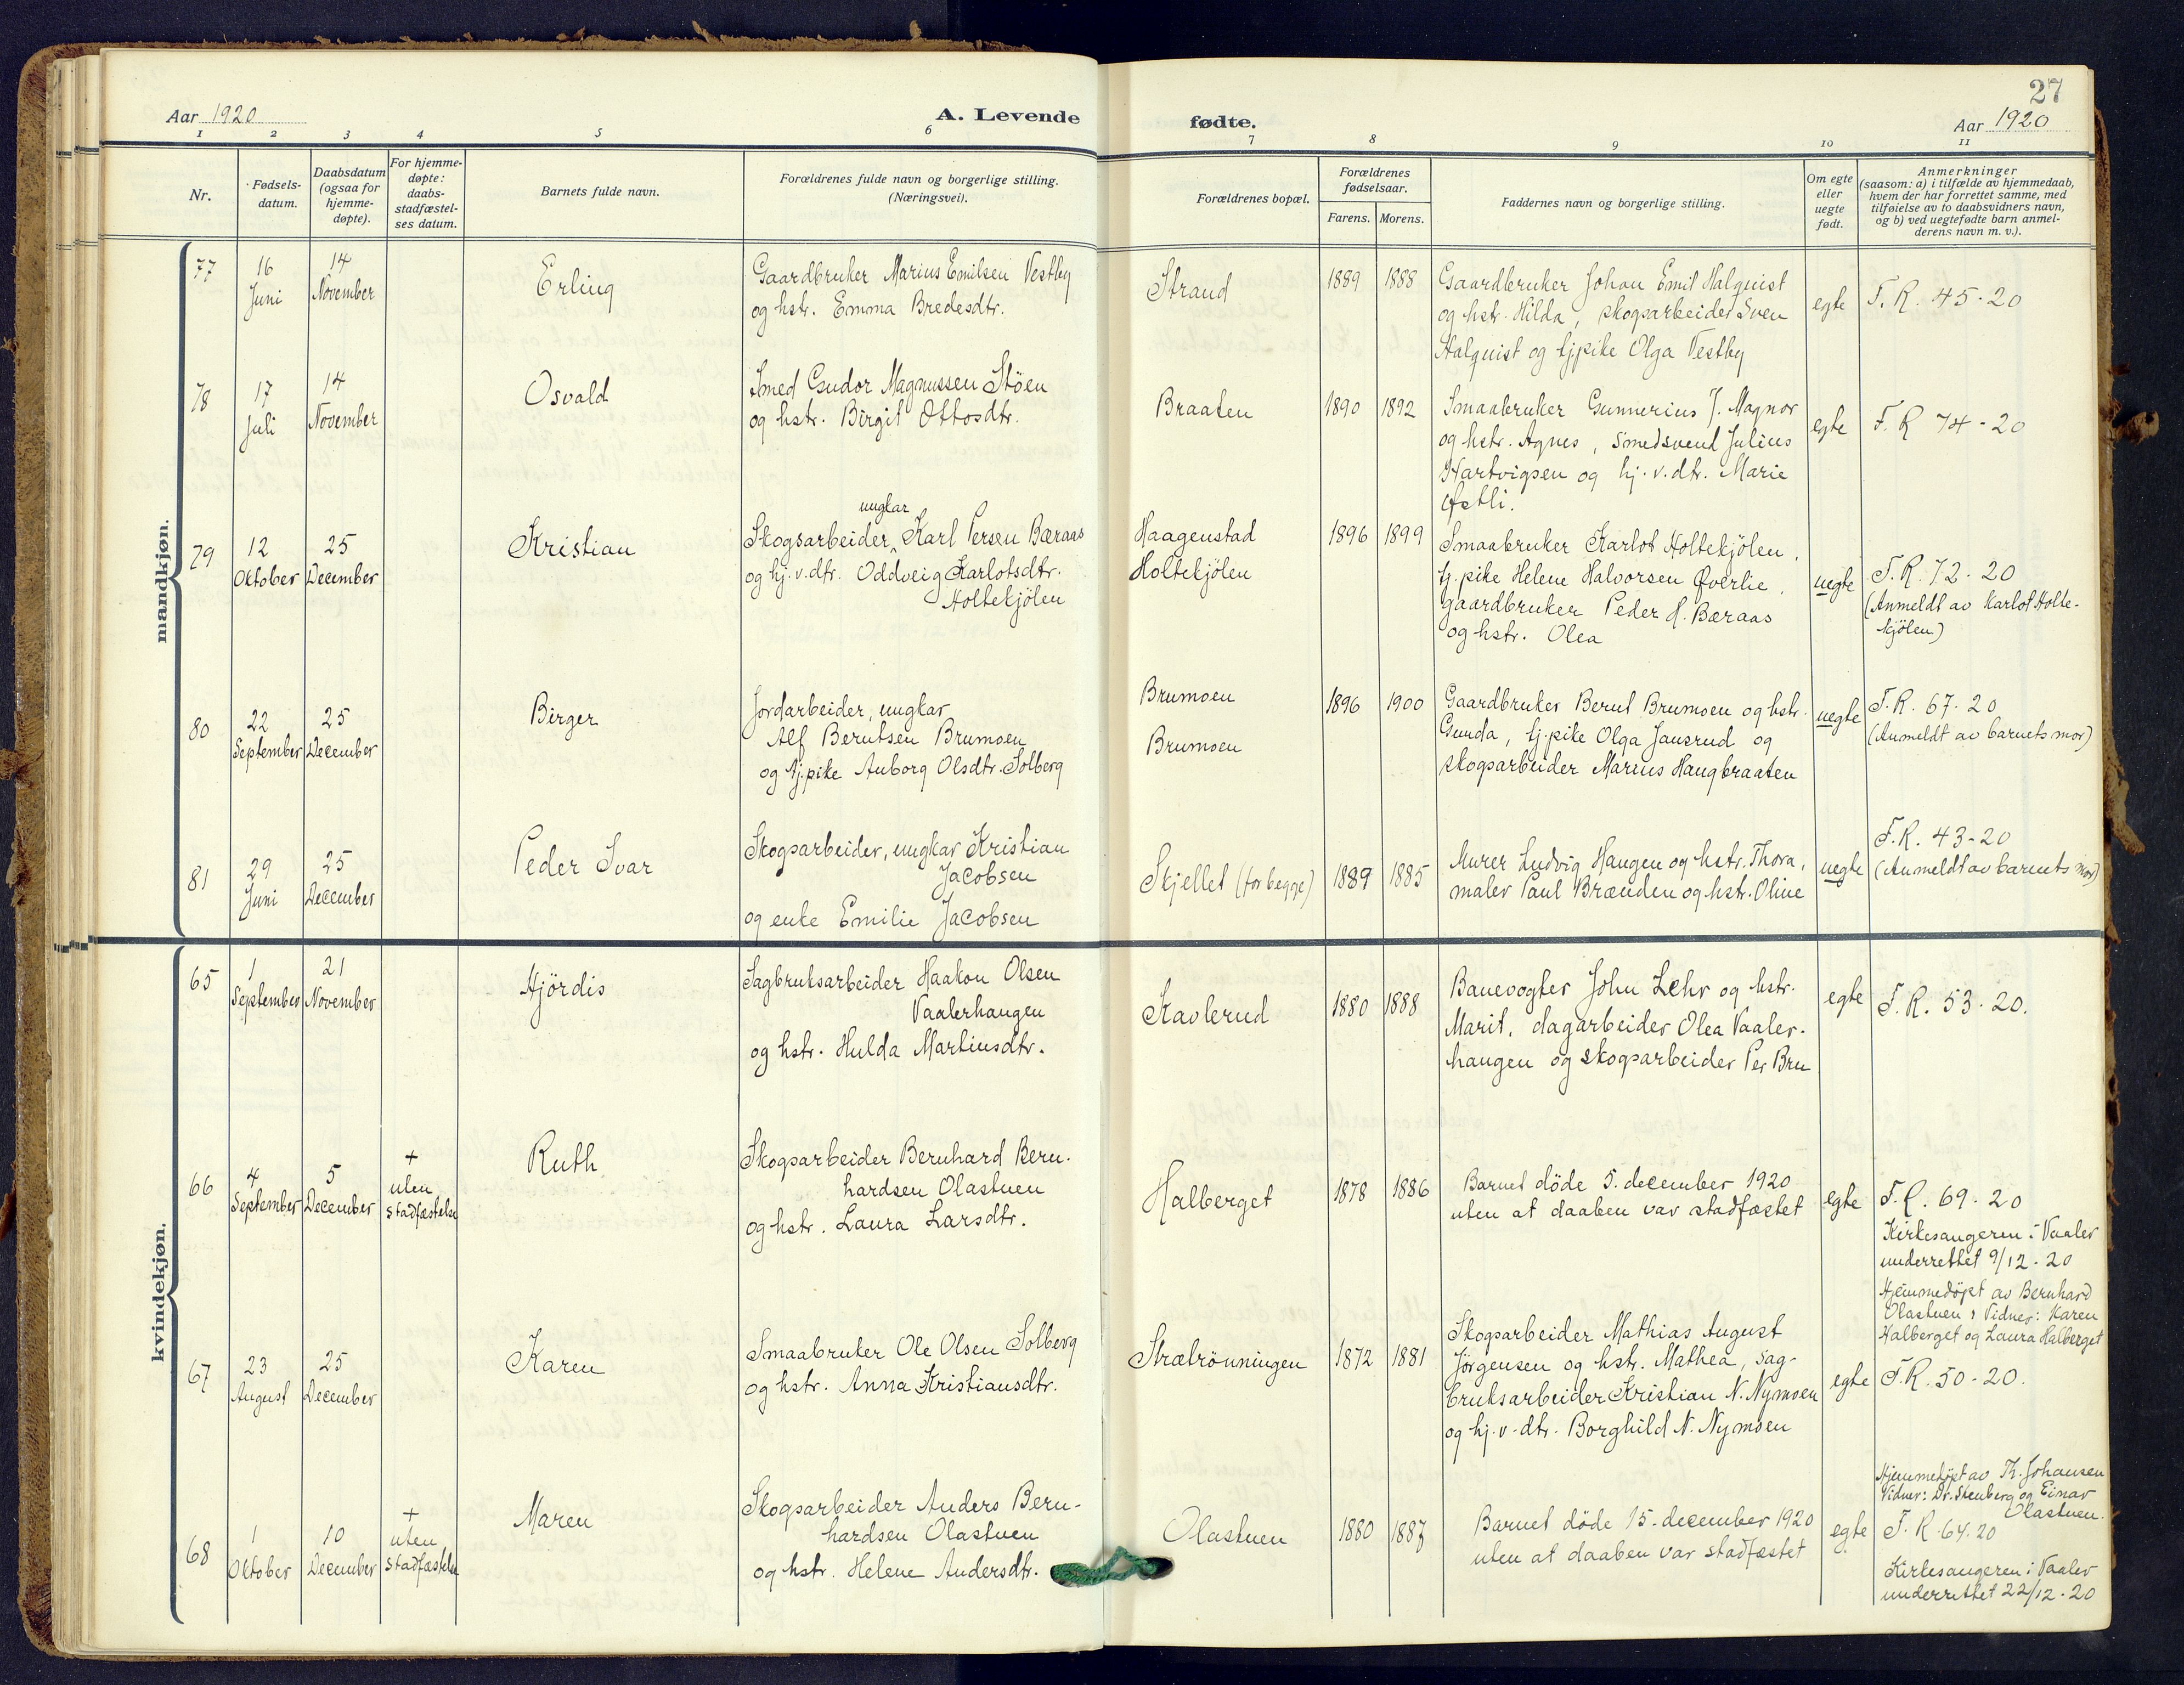 27
Aar 1920
A. Levende
fødte.
Aar 1920
1 2 3 4 5 6 7 8 9 10 11
Nr.
Fødsels-
datum.
Daabsdatum
(ogsaa for
hjemme-
døpte).
For hjemme-
døpte:
daabs-
stadfæstel-
ses datum.
Barnets fulde navn.
Forældrenes fulde navn og borgerlige stilling.
(Næringsvei).
Forældrenes bopæl.
Forældrenes
fødselsaar.
Farens. Morens.
Faddernes navn og borgerlige stilling.
Om egte
eller
uegte
født.
Anmerkninger
(saasom: a) i tilfælde av hjemmedaab,
hvem der har forrettet samme, med
tilføielse av to daabsvidners navn,
og b) ved uegtefødte barn anmel-
derens navn m. v.).
mandkjøn.
77
16
Juni
14
November
Erling
Gaardbruker Marius Emilsen Vestby
og hstr. Emma Bredesdtr.
Strand
1889
1888
Gaardbruker Johan Emil Halquist
og hstr. Hilda, skogsarbeider Sven
Halquist og tj.pike Olga Vestby
egte
F. R. 45-20
78
17
Juli
14
November
Osvald
Smed Gudor Magnussen Støen
og hstr. Birgit Ottosdtr.
Braaten
1890
1892
Smaabruker Gunnerius J. Magnor
og hstr. Agnes, smedsvend Julius
Hartvigsen og hj.v.dtr. Marie
Østli.
egte
F. R 74-20
79
12
Oktober
25
December
Kristian
ungkar
Skogsarbeider, Karl Persen Bæraas
og hj.v.dtr. Oddveig Karlotsdtr.
Holtekjölen
Haagenstad
Holtekjölen
1896
1899
Smaabruker Karlot Holtekjölen,
tj.pike Helene Halvorsen Øverlie,
gaardbruker Peder H. Bæraas
og hstr. Olea
uegte
F. R. 72-20
(Anmeldt av Karlot Holte-
kjölen)
80
22
September
25
December
Birger
Jordarbeider, ungkar
Alf Berntsen Brumoen
og tj.pike Anborg Olsdtr. Solberg
Brumoen
Brumoen
1896
1900
Gaardbruker Bernt Brumoen og hstr.
Gunda, tj.pike Olga Jansrud og
skogsarbeider Marius Haugbraaten
uegte
F. R. 67-20
(Anmeldt av barnets mor)
81
29
Juni
25
December
Peder Ivar
Skogsarbeider, ungkar Kristian
Jacobsen
og enke Emilie Jacobsen
Skjellet (for begge)
1889
1885
Murer Ludvig Haugen og hstr. Thora,
maler Paul Brænden og hstr. Oline
uegte
F. R. 43-20
(Anmeldt av barnets mor)
kvindekjøn.
65
1
September
21
November
Hjördis
Sagbruksarbeider Haakon Olsen
Vaalerhaugen
og hstr. Hulda Martinsdtr.
Kavlerud
1880
1888
Banevogter John Lehr og hstr.
Marit, dagarbeider Olea Vaaler-
haugen og skogsarbeider Per Bru
egte
F. R. 53-20.
66
4
September
5
December
+
uten
stadfæstelse
Ruth
Skogsarbeider Bernhard Bern-
hardsen Olastuen
og hstr. Laura Larsdtr.
Halberget
1878
1886
Barnet döde 5. december 1920
uten at daaben var stadfæstet
egte
F. R. 69-20
Kirkesangeren i Vaaler
underrettet 9/12-20
Hjemmedöpt av Bernhard
Olastuen, Vidner: Karen
Halberget og Laura Halberget
67
23
August
25
December
Karen
Smaabruker Ole Olsen Solberg
og hstr. Anna Kristiansdtr.
Strætrönningen
1872
1881
Skogsarbeider Mathias August
Jørgensen og hstr. Mathea, sag-
bruksarbeider Kristian N. Nymoen
og hj.v.dtr. Borghild N. Nymoen
egte
F. R. 50-20.
68
1
Oktober
10
December
+
uten
stadfæstelse
Maren
Skogsarbeider Anders Bern-
hardsen Olastuen
og hstr. Helene Andersdtr.
Olastuen
1880
1887
Barnet döde 15. december 1920
uten at daaben var stadfæstet
egte
Hjemmedöpt av Th. Johansen
Vidner: Dr. Stenberg og Einar
Olastuen.
F. R. 64-20
Kirkesangeren i Vaaler
underrettet 22/12-20